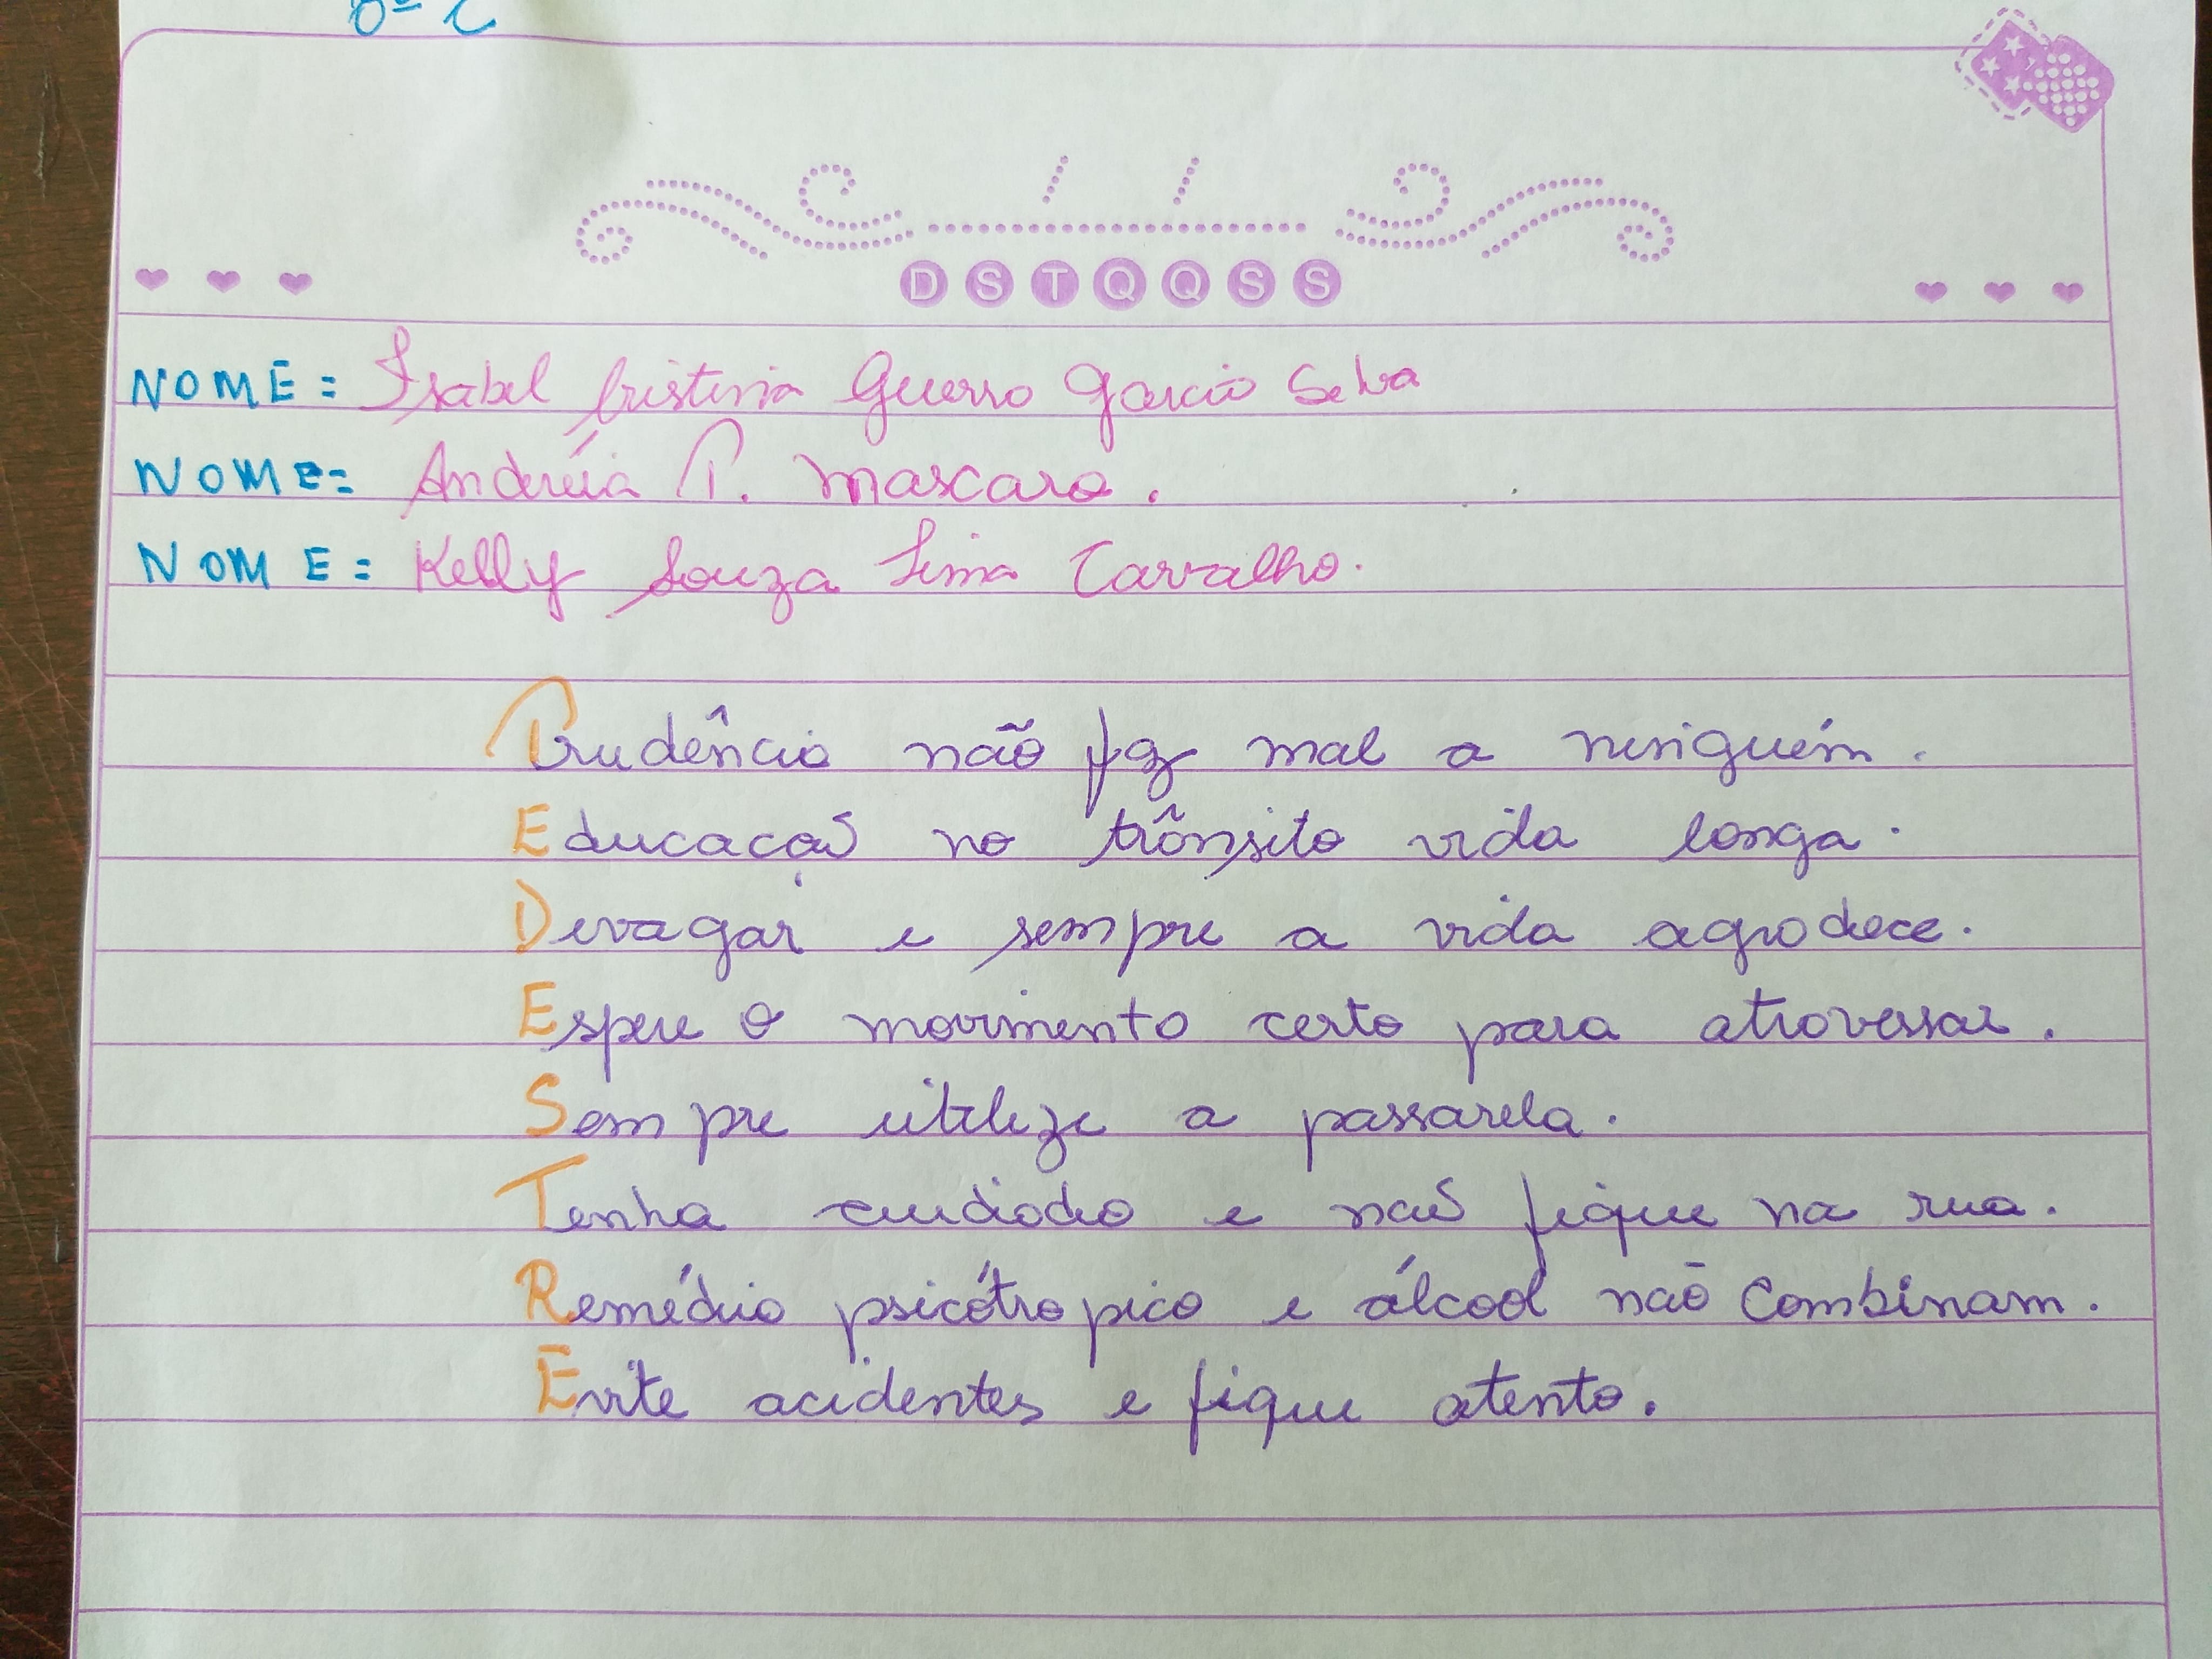 / /
D S T Q Q S S
NOME: Isabel Cristina Guerro Garcia Selva
NOME: Andréia P. Mascaro.
NOME: Kelly Souza Lima Carvalho.
Prudência não faz mal a ninguém.
Educação no trânsito vida longa.
Devagar e sempre a vida agradece.
Espere o movimento certo para atravessar.
Sempre utilize a passarela.
Tenha cuidado e não fique na rua.
Remédio psicótropico e álcool não combinam.
Evite acidentes e fique atento.